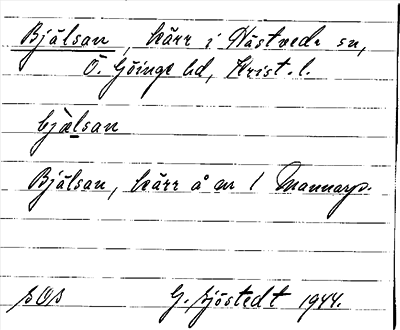 Bjälsan, kärr i Hästveda sn,
Ö. Göinge hd, Krist. l.
bjælsan
Bjälsan, kärr å ön 1 Mannarp.
SOS G. Sjöstedt 1944.